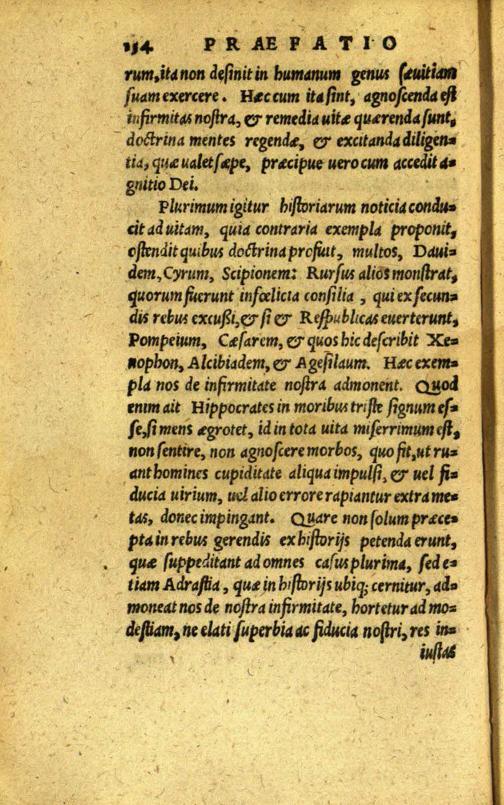 154. PRÆFATIO
rum, ita non desinit in humanum genus sævitiam
suam exercere. Hæc cum ita sint, agnoscenda est
infirmitas nostra, & remedia uitæ quærenda sunt,
doctrina mentes regendæ, & excitanda diligen=
tia, quæ ualet sæpe, præcipue uero cum accedit a=
gnitio Dei.
Plurimum igitur historiarum noticia condu=
cit ad uitam, quia contraria exempla proponit,
ostendit quibus doctrina profuit, multos, Daui=
dem, Cyrum, Scipionem: Rursus alios monstrat,
quorum fuerunt infœlicia consilia, qui ex secun=
dis rebus excußi, & si & Respublicas euerterunt,
Pompeium, Cæsarem, & quos hic describit Xe=
nophon, Alcibiadem, & Agesilaum. Hæc exem=
pla nos de infirmitate nostra admonent. Quod
enim ait Hippocrates in moribus triste signum es=
se, si mens ægrotet, id in tota uita miserrimum est,
non sentire, non agnoscere morbos, quo fit, ut ru=
ant homines cupiditate aliqua impulsi, & uel fi=
ducia uirium, uel alio errore rapiantur extra me=
tas, donec impingant. Quare non solum præce=
pta in rebus gerendis ex historijs petenda erunt,
quæ suppeditant ad omnes casus plurima, sed e=
tiam Adrastia, quæ in historijs ubiq; cernitur, ad=
moneat nos de nostra infirmitate, hortetur ad mo=
destiam, ne elati superbia ac fiducia nostri, res in=
iustas